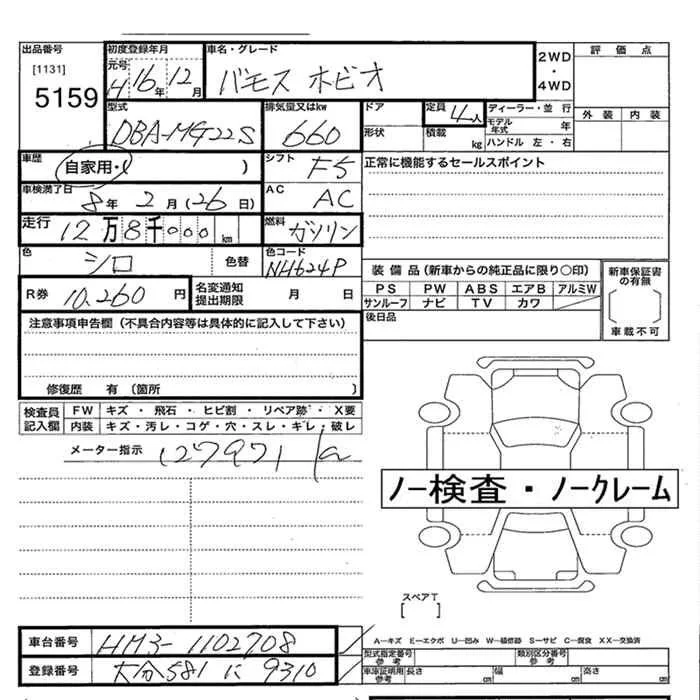 出品番号 初度登録年月 車名・グレード 評価点
[1131] 元号 2WD
5159 H 16年 12月 バモス ホビオ ・
4WD
型式 排気量又はkw ドア 定員 4人 ディーラー・並行 外装 内装
DBA-M 660 形状 積載 kg モデル年式 年
ハンドル 左・右
車歴 自家用・( ) シフト F5 正常に機能するセールスポイント
車検満了日 8年 2月(26日) AC AC
走行 12万8千000km 燃料 ガソリン
色 シロ 色替 色コード NH624P
装備品(新車からの純正品に限り○印) 新車保証書の有無
R券 10.260円 名変通知提出期限 月 日
PS PW ABS エアB アルミW
サンルーフ ナビ TV カワ
車載不可
注意事項申告欄(不具合内容等は具体的に記入して下さい) 後日品
修復歴 有(箇所 )
検査員記入欄 FW キズ・飛石・ヒビ割・リペア跡・X要
内装 キズ・汚レ・コゲ・穴・スレ・キレ・破レ
メーター指示 127971
ノー検査・ノークレーム
スペアT
[ ]
A−キズ E−エクボ U−凹み W−補修跡 S−サビ C−腐食 XX−交換済
車台番号 HM3-1102708 型式指定番号 参考 類別区分番号 参考
登録番号 大分581 に 9310 車庫証明用 参考 長さ cm 幅 cm 高さ cm